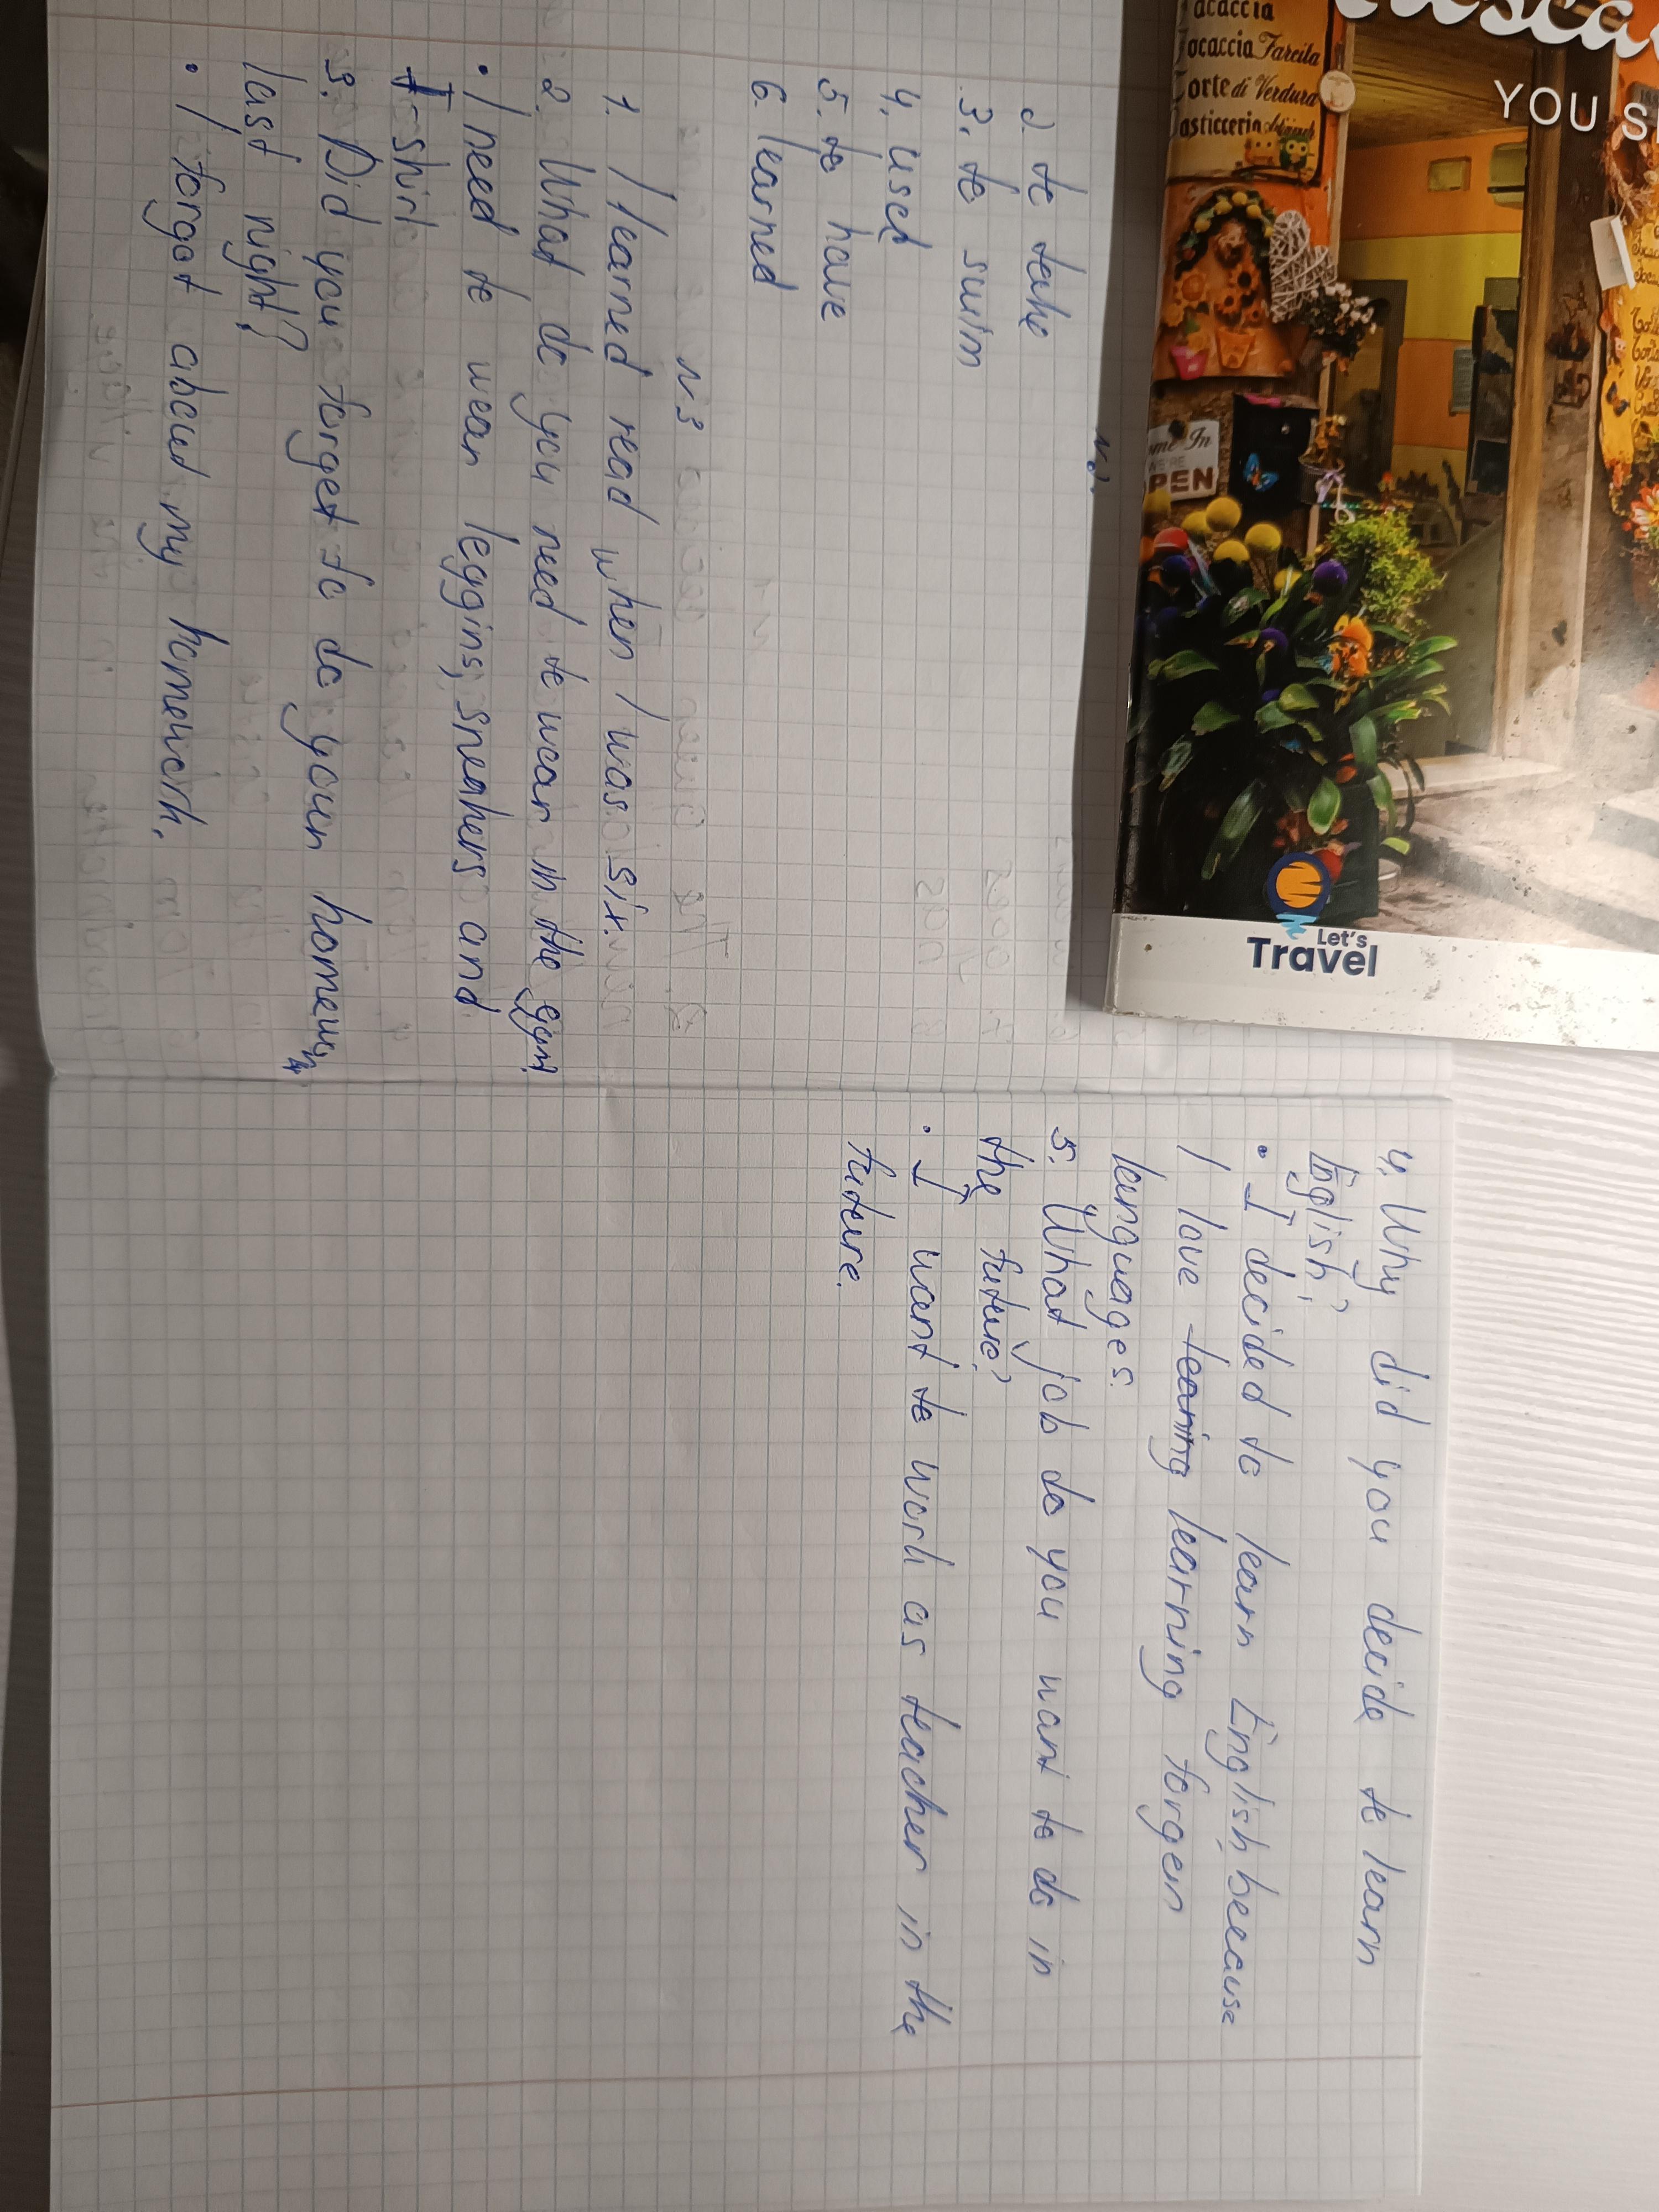 N2.
2. to take
3. to swim
4. used
5. to have
6. learned
N3
1. I learned read when I was six.
2. What do you need to wear in the gym
• I need to wear leggins, sneakers and
T-shirt
3. Did you forget to do your homework
last night?
• I forgot about my homework.
4. Why did you decide to learn
English?
• I decided to learn English because
I love learning forgein
languages.
5. What job do you want to do in
the future?
• I want to work as teacher in the
future.
ocaccia Farcita
Torte di Verdura
asticceria
YOU
me In
WE'RE
PEN
Let's
Travel